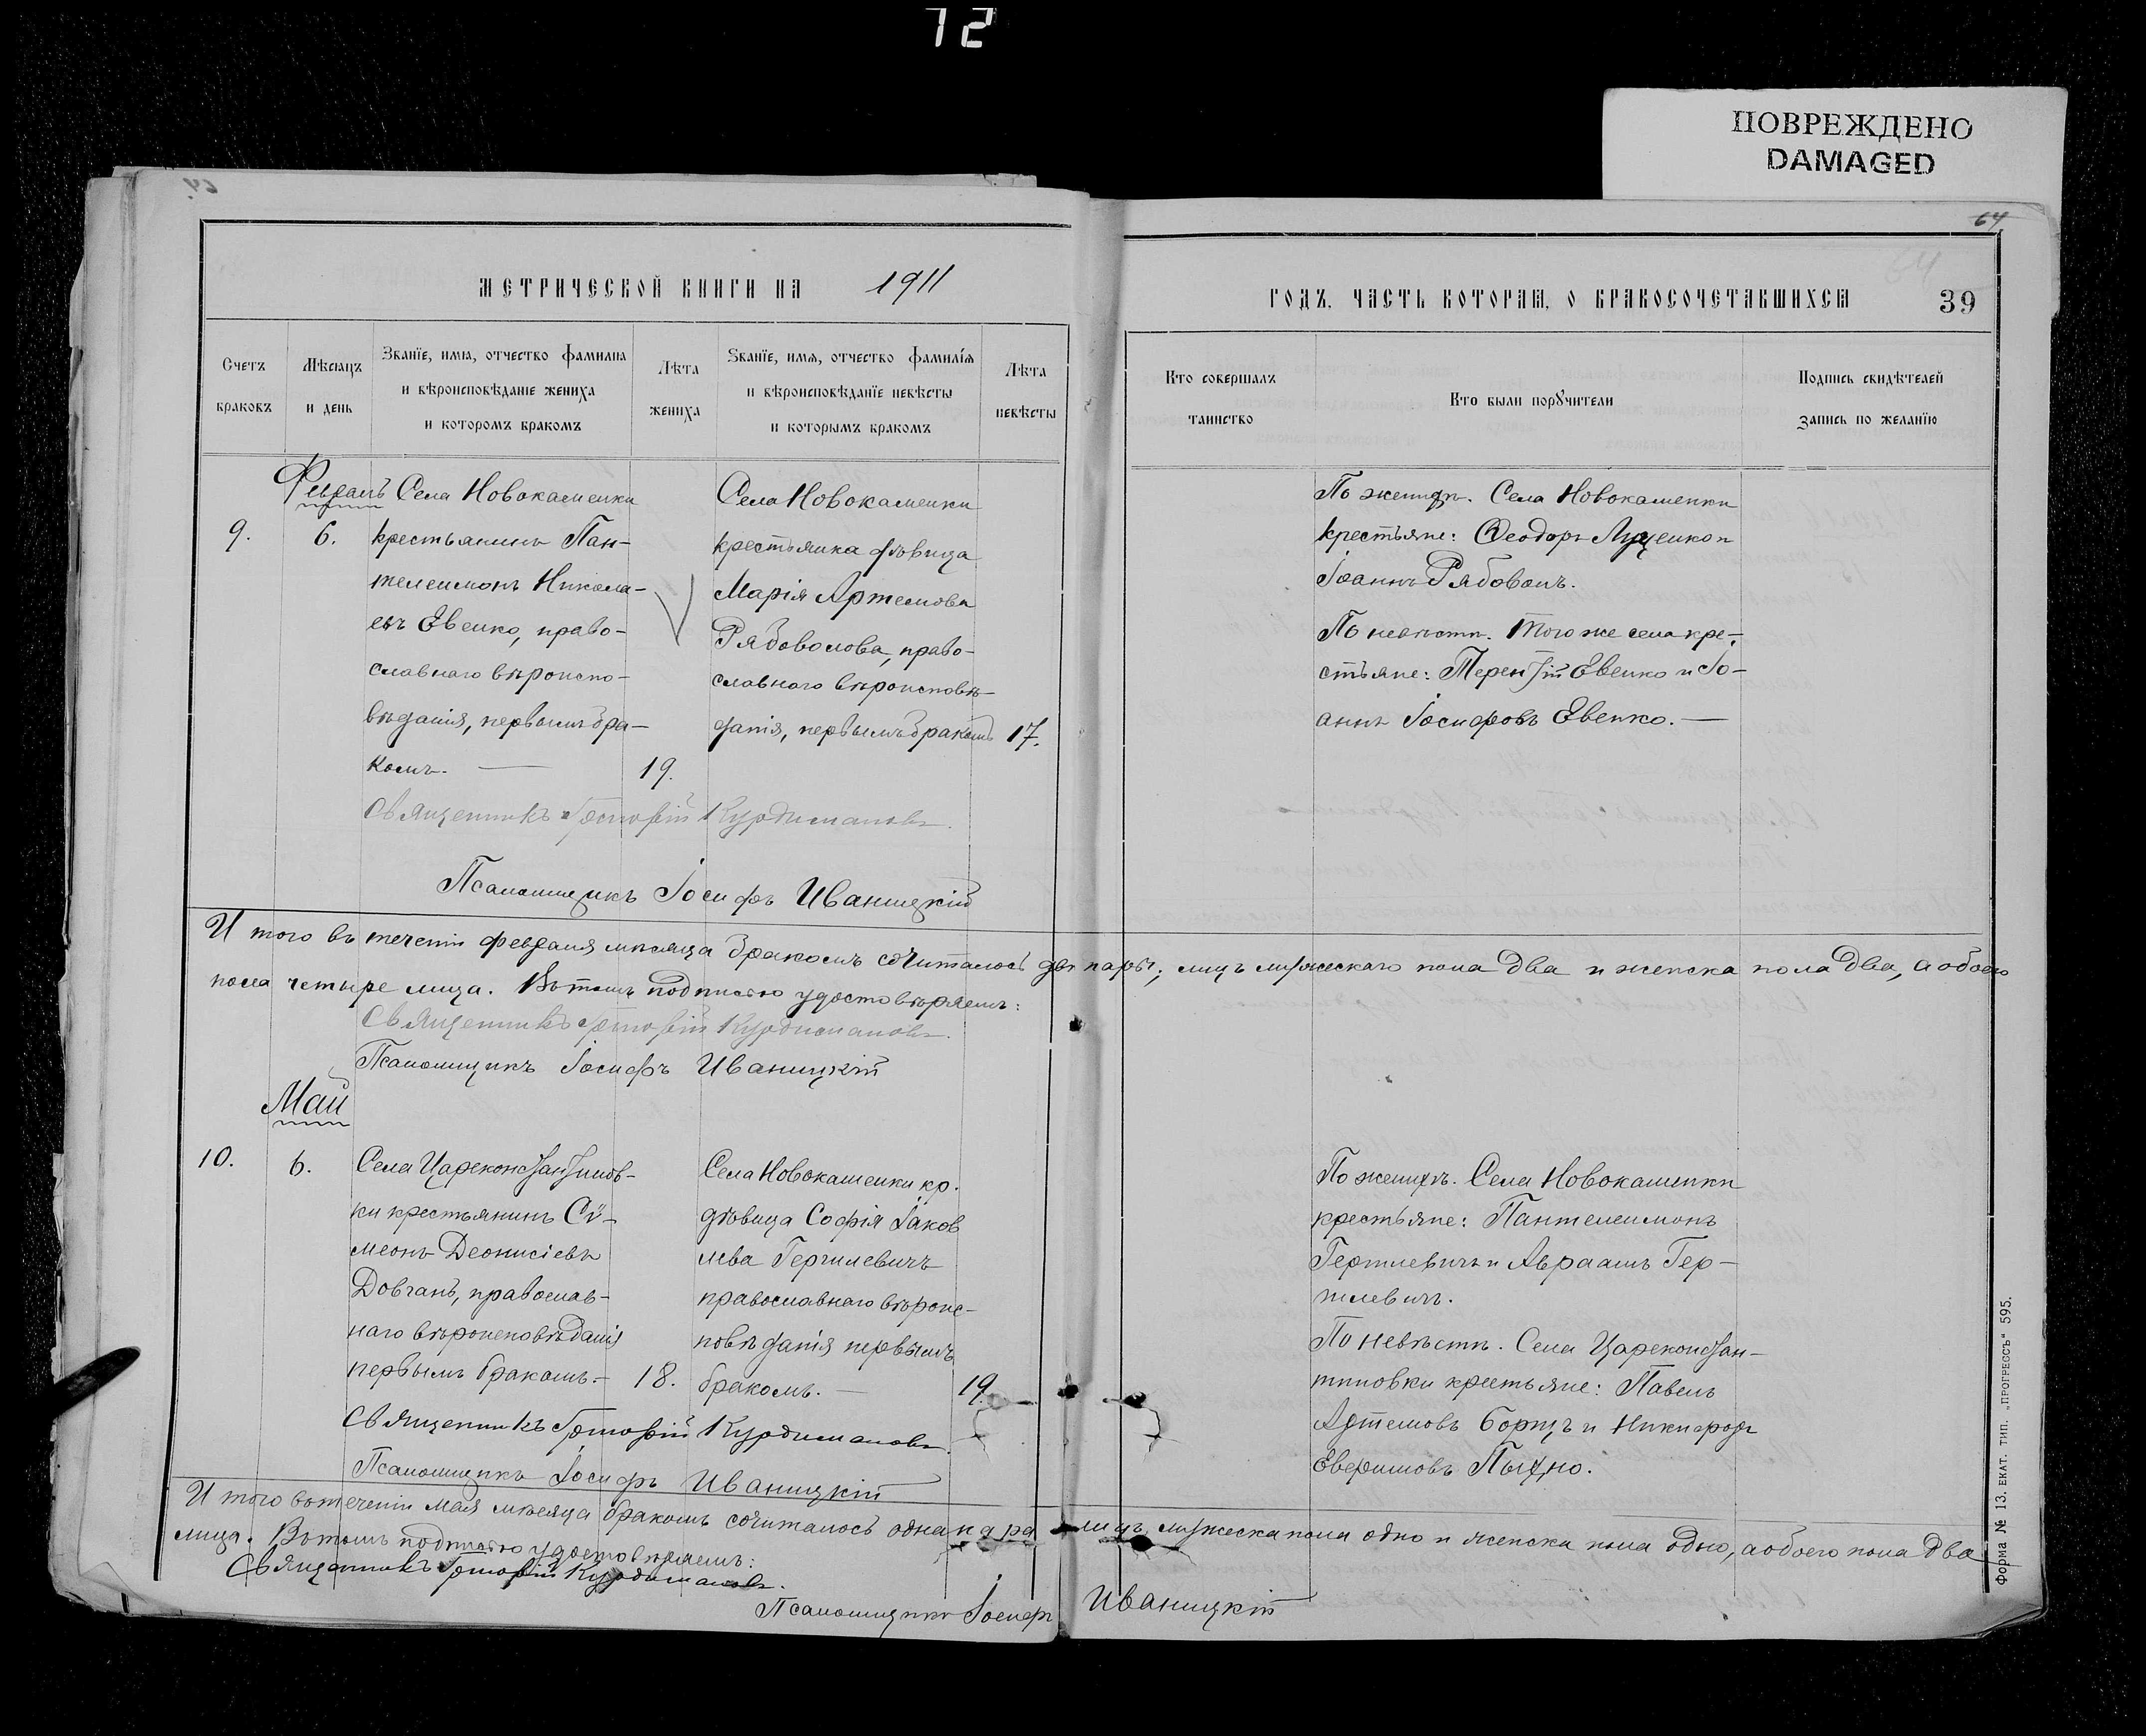 12
ПОВРЕЖДЕНО
DAMAGED
64
64
МЕТРИЧЕСКОЙ КНИГИ НА 1911
ГОДЪ, ЧАСТЬ ВТОРАЯ, О БРАКОСОЧЕТАВШИХСЯ 39
Счетъ
браковъ
Мѣсяцъ
и день
Званїе, имя, отчество фамилїа
и вѣроисповѣданїе жениха
и которомъ бракомъ
Лѣта
жениха
Званїе, имя, отчество фамилїя
и вѣроисповѣданїе невѣсты
и которымъ бракомъ
Лѣта
невѣсты
Кто совершалъ
таинство
Кто были порѹчители
Подпись свидѣтелей
запись по желанїю
Февраль
9.
6.
Села Новокаменки
крестьянинъ Пан-
телеимонъ Никола-
евъ Евенко, право-
славнаго вѣроиспо-
вѣданія, первымъ бра-
комъ. —
19.
Села Новокаменки
крестьянка дѣвица
Марія Артемова
Рябоволова, право-
славнаго вѣроисповѣ-
данія, первымъ бракомъ
17.
По женихѣ. Села Новокаменки
крестьяне: Ѳеодоръ Луценко и
Іоаннъ Рябоволъ.
По невѣстѣ. Того же села кре-
стьяне: Терентій Евенко и Іо-
аннъ Іосифовъ Евенко. —
Священникъ Григорій Курдимановъ.
Псаломщикъ Іосифъ Иваницкій
Итого въ теченіи февраля мѣсяца бракомъ сочиталось двѣ пары; лицъ мужескаго пола два и женска пола два, а обоего
пола четыре лица. Въ томъ подписью удостовѣряемъ:
Священникъ Григорій Курдимановъ.
Псаломщикъ Іосифъ Иваницкій
Май
10.
6.
Села Цареконстантинов-
ки крестьянинъ Си-
меонъ Деонисіевъ
Довганъ, православ-
наго вѣроисповѣданія
первымъ бракомъ. —
18.
Села Новокаменки кр.
дѣвица Софія Іаков
лева Гергилевичъ
православнаго вѣроис-
повѣданія первымъ
бракомъ. —
19.
По женихѣ. Села Новокаменки
крестьяне: Пантелеимонъ
и Авраамъ Гер-
По невѣстѣ. Села Цареконстан-
тиновки крестьяне: Павелъ
Артемовъ Борщъ и Никифоръ
Священникъ Григорій Курдимановъ.
Псаломщикъ Іосифъ Иваницкій
Итого въ теченіи мая мѣсяца бракомъ сочиталось одна пара лицъ мужеска пола одно и женска пола одно, а обоего пола два
лица. Въ томъ подписью удостовѣряемъ:
Священникъ Григорій Курдимановъ.
Псаломщикъ Іосифъ Иваницкій
Форма № 13. ЕКАТ. ТИП. „ПРОГРЕССЪ" 595.